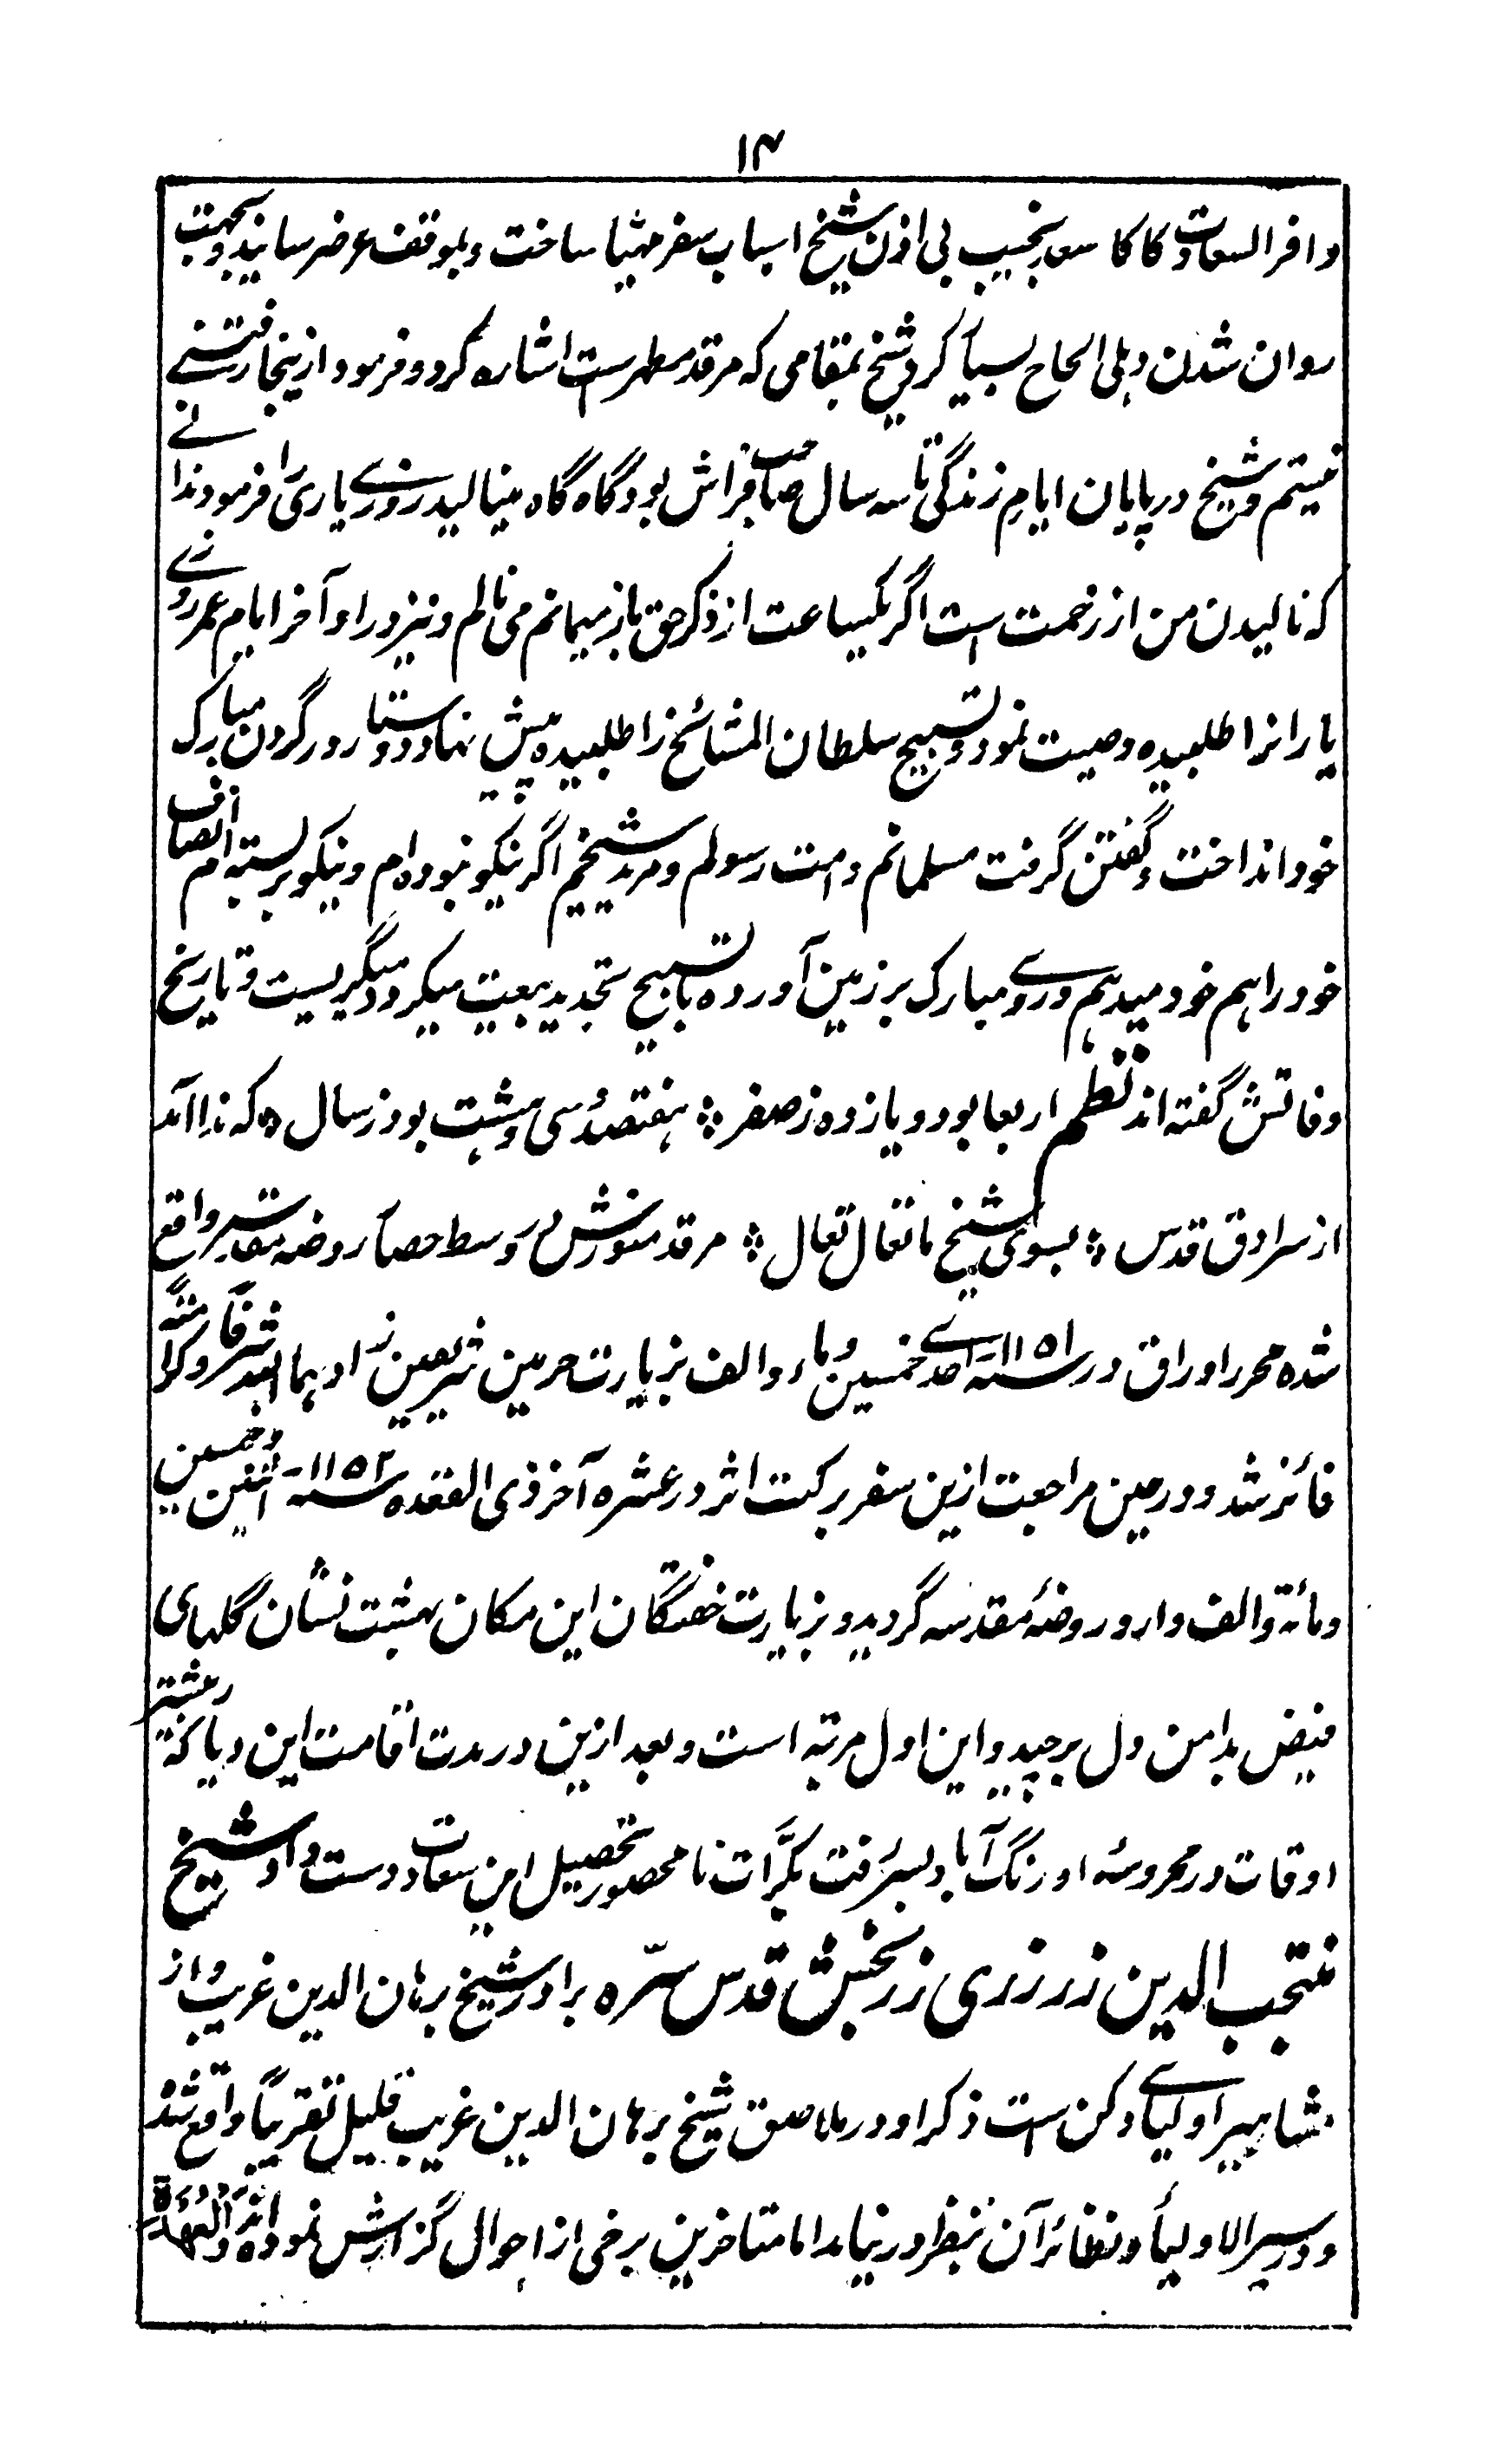 ۱۴
وافرالسعادت کاکا سعدبخیب بی اذن شیخ اسباب سفر مهیا ساخت و بموقف عرض رسانید و بجهت
روان شدن دہلی الحاح بسیار کرد شیخ بمقامی که مرقد مطهرست اشاره کرد و فرمود ازینجا رفتنے
نیستم و شیخ در پایان ایام زندگی تا سه سال صاحب فراش بود گاه گاه مینالید روزے یاری را فرمود ندانے
که نالیدن من از زحمت است اگر یکساعت از ذکر حق باز میمانم می نالم و نیز در اواخر ایام عمر روزے
یارانرا طلبیده وصیت نمود و تسبیح سلطان المشائخ را طلبیده پیش نهاد و دستار در گردن مبارک
خود انداخت و گفتن گرفت مسلمانم و امت رسولم و مرید شیخم اگر نیکو نبوده ام و نیکو نزیسته ام انصاف
خود را هم خود میدهم و روے مبارک بر زمین آورده با تسبیح تجدید بیعت میکرد و میگریست و تاریخ
وفاتش گفته اند نظم اربعا بود و یازده ز صفر ⁘ هفتصد و سی و هشت بود ز سال ⁘ که ندا آمد
از سرادق قدس ⁘ بسوی شیخ ما تعال تعال ⁘ مرقد منورش در وسط حصار روضه مقدسه واقع
شده محرر اوراق در سنه ۱۱۵۱ احدے خمسین و مأه و الف بزیارت حرمین شریفین زادهما الله شرفا و کرامته
فائز شد و در حین مراجعت ازین سفر برکت اثر در عشره آخر ذی القعده سنه ۱۱۵۲ اثنین و خمسین
و مائة و الف وارد روضۀ مقدسه گردید و بزیارت خفتگان این مکان بهشت نشان گلهای
فیض بدامن دل برچید و این اول مرتبه است و بعد ازین در مدت اقامت این دیار که عشتر
اوقات در محروسه اورنگ آباد بسر رفت بکرّات نامحصور تحصیل این سعادت دست داد شیخ
منتجب الدین زر زری زر بخش قدس سرّه برادر شیخ برهان الدین غریب و از
مشاهیر اولیاے دکن ست ذکر او در ملاصق شیخ برهان الدین غریب قلیل تقریباً واقع شد
و در سیر الاولیأ و نظائر آن بنظر در نیامد اما متاخرین برخی از احوال گزارش نموده اند و العهدة